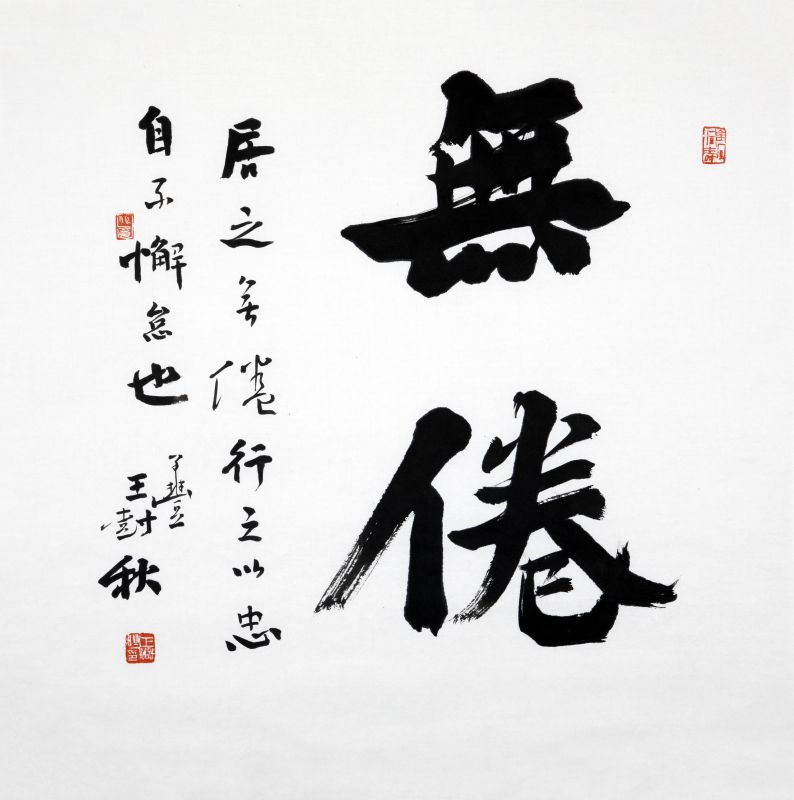 無倦
居之無倦行之以忠
自不懈怠也
王樹秋